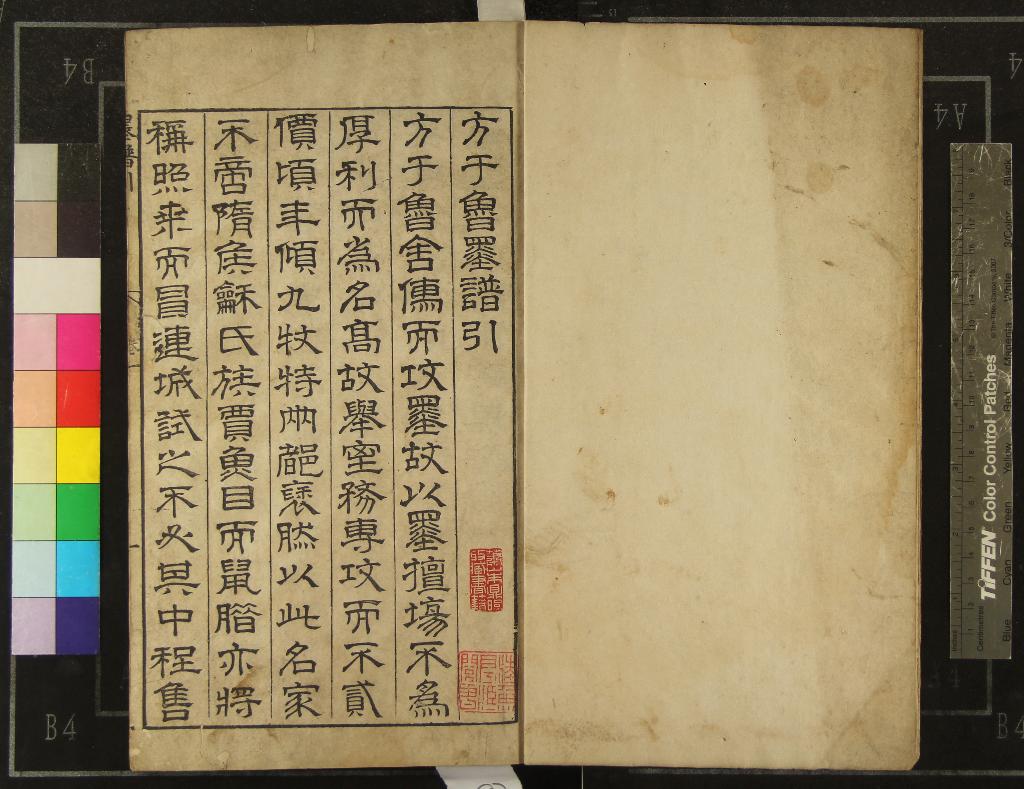 方于魯墨譜引
方于魯舍儁而攻墨故以墨擅塲不為
厚利而為名髙故舉室務專攻而不貳
價頃年傾九牧特兩都褎然以此名家
不啻隋矦龢氏族賈魚目而鼠腊亦將
稱照乗而冒連城試之不必其中程售
墨譜引
B4
A4
B4
TIFFEN Color Control Patches
Blue Cyan Green Yellow Red Magenta White 3/Color Black
Inches
Centimetres